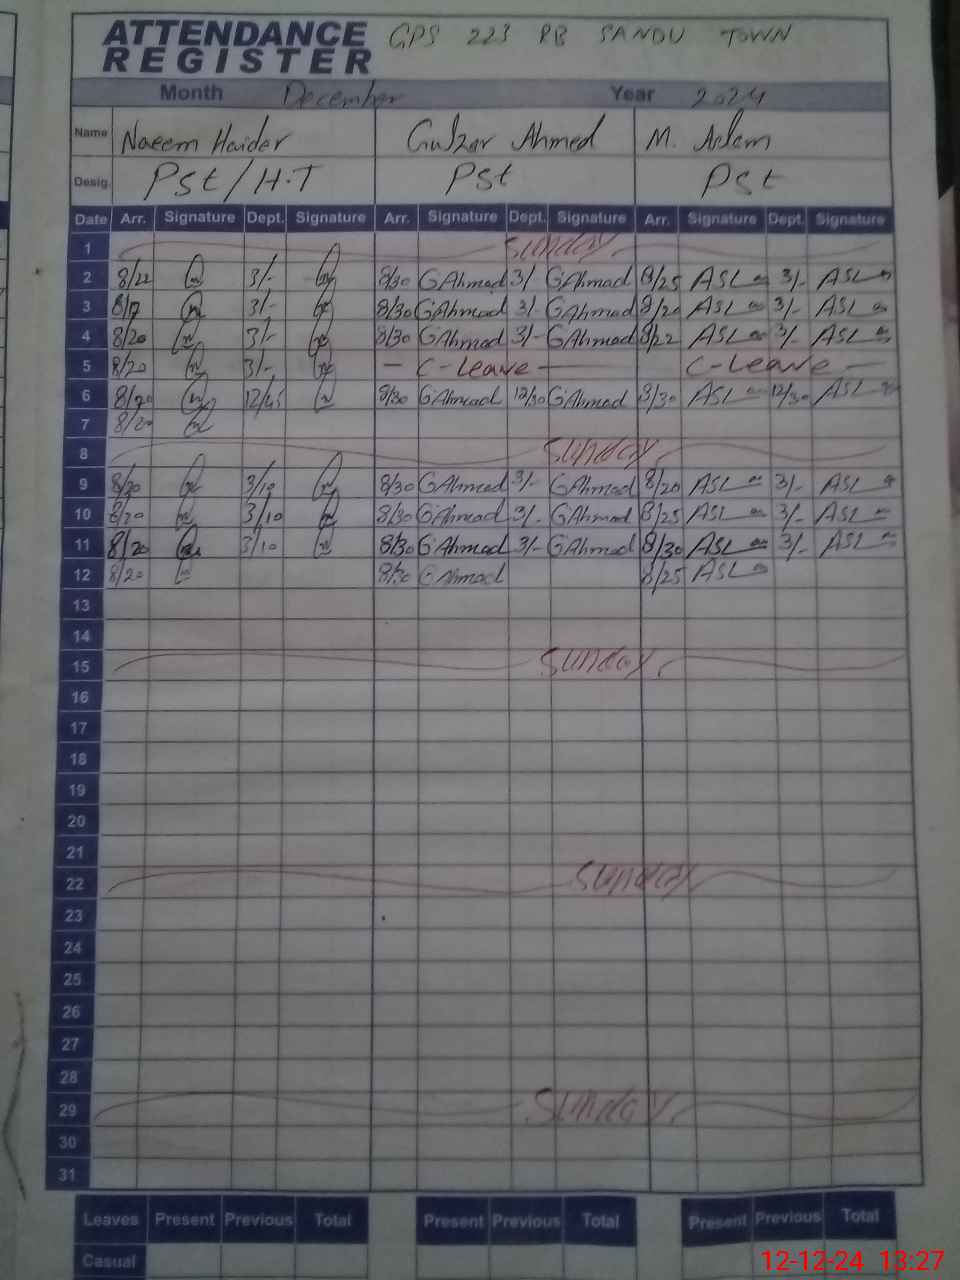 ATTENDANCE REGISTER GPS 223 RB SANDU TOWN
Month December Year 2024
Name Naeem Haider Gulzar Ahmed M. Aslam
Desig. Pst/H.T Pst Pst
Date Arr. Signature Dept. Signature Arr. Signature Dept. Signature Arr. Signature Dept. Signature
1 Sunday
2 8/22 3/- 8/30 GAhmad 3/- GAhmad 8/25 ASL 3/- ASL
3 3/- 8/30 GAhmad 3/- GAhmad 8/20 ASL 3/- ASL
4 8/20 3/- 8/30 GAhmad 3/- GAhmad 8/22 ASL 3/- ASL
5 8/20 3/- - C-Leave - C-Leave -
6 8/20 12/45 8/30 GAhmad 12/30 GAhmad 8/30 ASL 12/30 ASL
7 8/20
8 Sunday
9 8/20 3/10 8/30 GAhmad 3/- GAhmad 8/20 ASL 3/- ASL
10 8/20 3/10 8/30 GAhmad 3/- GAhmad 8/25 ASL 3/- ASL
11 8/20 3/10 8/30 GAhmad 3/- GAhmad 8/30 ASL 3/- ASL
12 8/20 8/30 GAhmad 8/25 ASL
13
14
15 Sunday
16
17
18
19
20
21
22 Sunday
23
24
25
26
27
28
29 Sunday
30
31
Leaves Present Previous Total Present Previous Total Present Previous Total
Casual
12-12-24 13:27